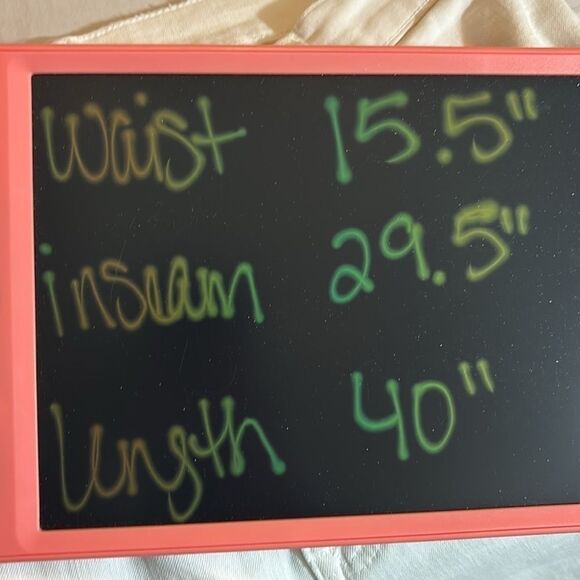 Waist 15.5"
inseam 29.5"
length 40"